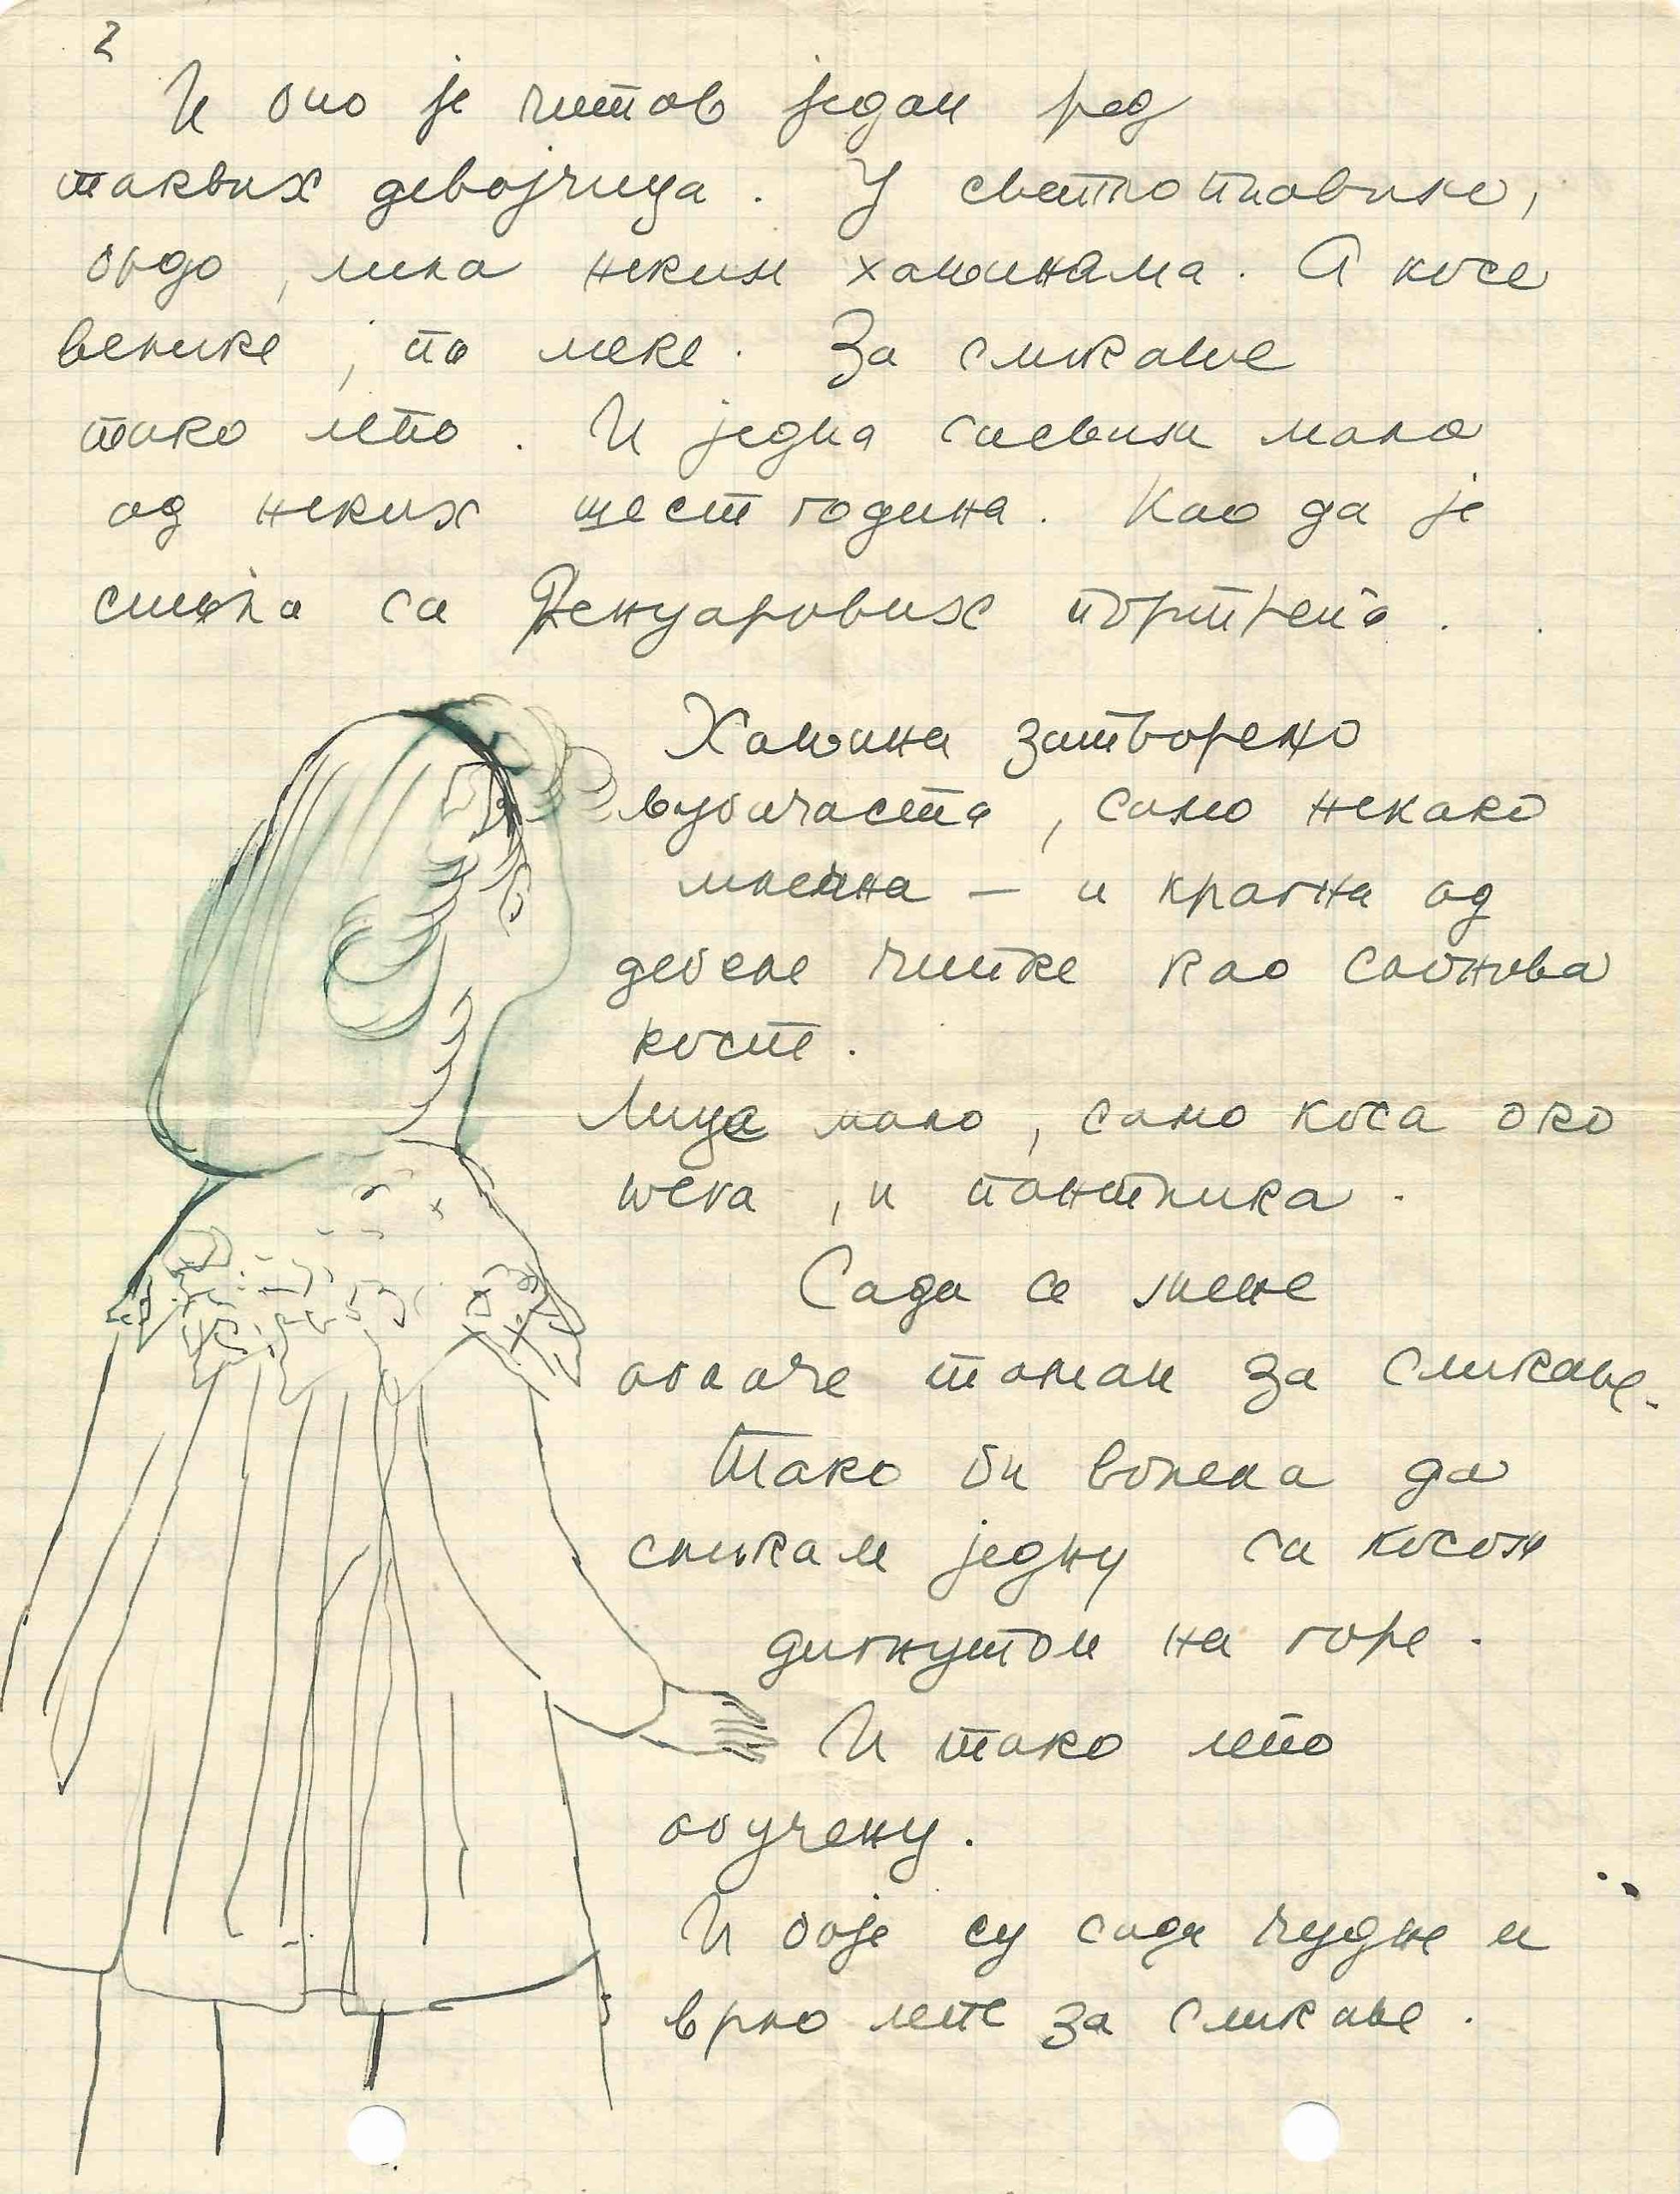 2
И оно је читав један ред
таквих девојчица. У светлоплавим,
бордо, лила неким хаљинама. А косе
велике, па меке. За сликање
тако лепо. И једна сасвим мала
од неких шест година. Као да је
сишла са Ренуарових портрета.
Хаљина затворено
љубичаста, само некако
млечна — и крагна од
дебеле чипке као слонова
кост.
Лица мало, само коса око
њега, и пантљика.
Сада се жене
облаче таман за сликање.
Тако би волела да
сликам једну са косом
дигнутом на горе.
И тако лепо
обучену.
И боје су сада чудне и
врло лепе за сликање.